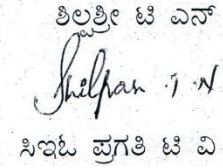 ಶಿಲ್ಪಶ್ರೀ ಟಿ ಎನ್
Shilpa T N
ಸಿಇಓ ಪ್ರಗತಿ ಟಿ ವಿ